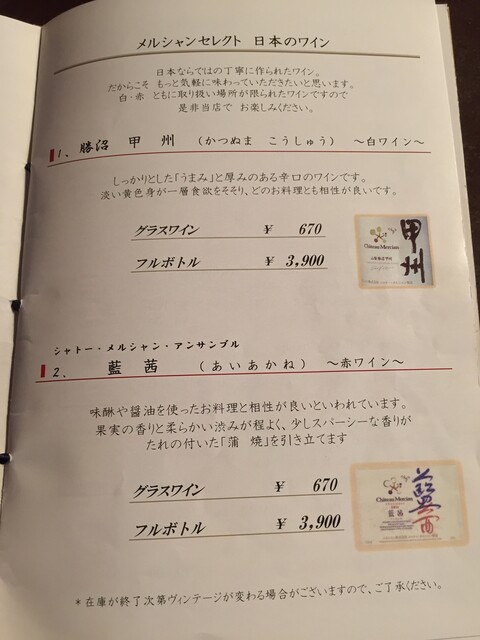 メルシャンセレクト 日本のワイン
日本ならではの丁寧に作られたワイン。
だからこそ もっと気軽に味わっていただきたいと思います。
白・赤 ともに取り扱い場所が限られたワインですので
是非当店で お楽しみください。
1. 勝沼 甲州 (かつぬま こうしゅう) ～白ワイン～
しっかりとした「うまみ」と厚みのある辛口のワインです。
淡い黄色身が一層食欲をそそり、どのお料理とも相性が良いです。
グラスワイン ¥ 670
フルボトル ¥ 3,900
甲州
Château Mercian
シャトー・メルシャン・アンサンブル
2. 藍茜 (あいあかね) ～赤ワイン～
味醂や醤油を使ったお料理と相性が良いといわれています。
果実の香りと柔らかい渋みが程よく、少しスパーシーな香りが
たれの付いた「蒲 焼」を引き立てます
グラスワイン ¥ 670
フルボトル ¥ 3,900
藍茜
Château Mercian
藍茜
＊在庫が終了次第ヴィンテージが変わる場合がございますので、ご了承ください。